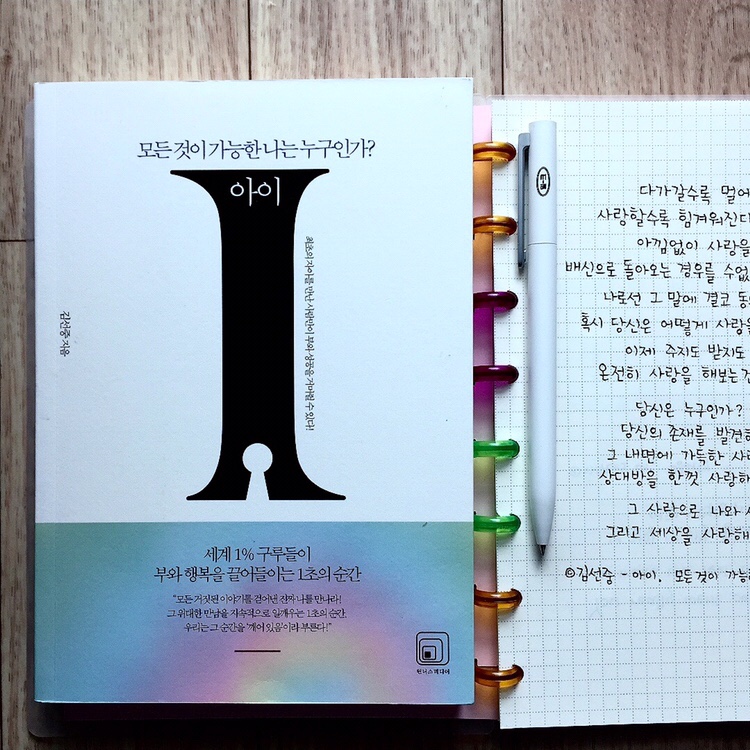 모든 것이 가능한 나는 누구인가?
아이
최초의 자아를 만난 사람만이 부와 성공을 거머쥘 수 있다!
김선중 지음
세계 1% 구루들이
부와 행복을 끌어들이는 1초의 순간
"모든 거짓된 이야기를 걷어낸 진짜 나를 만나라!
그 위대한 만남을 지속적으로 일깨우는 1초의 순간.
우리는 그 순간을 '깨어 있음'이라 부른다!"
위너스미디어
다가갈수록 멀어
사랑할수록 힘겨워진다
아낌없이 사랑을
배신으로 돌아오는 경우를 수없
나로선 그 말에 결코 동
혹시 당신은 어떻게 사랑을
이제 주지도 받지도
온전히 사랑을 해보는 것
당신은 누구인가?
당신의 존재를 발견하
그 내면에 가득한 사랑
상대방을 한껏 사랑하
그 사랑으로 나와 세
그리고 세상을 사랑해
©김선중 - 아이. 모든 것이 가능한